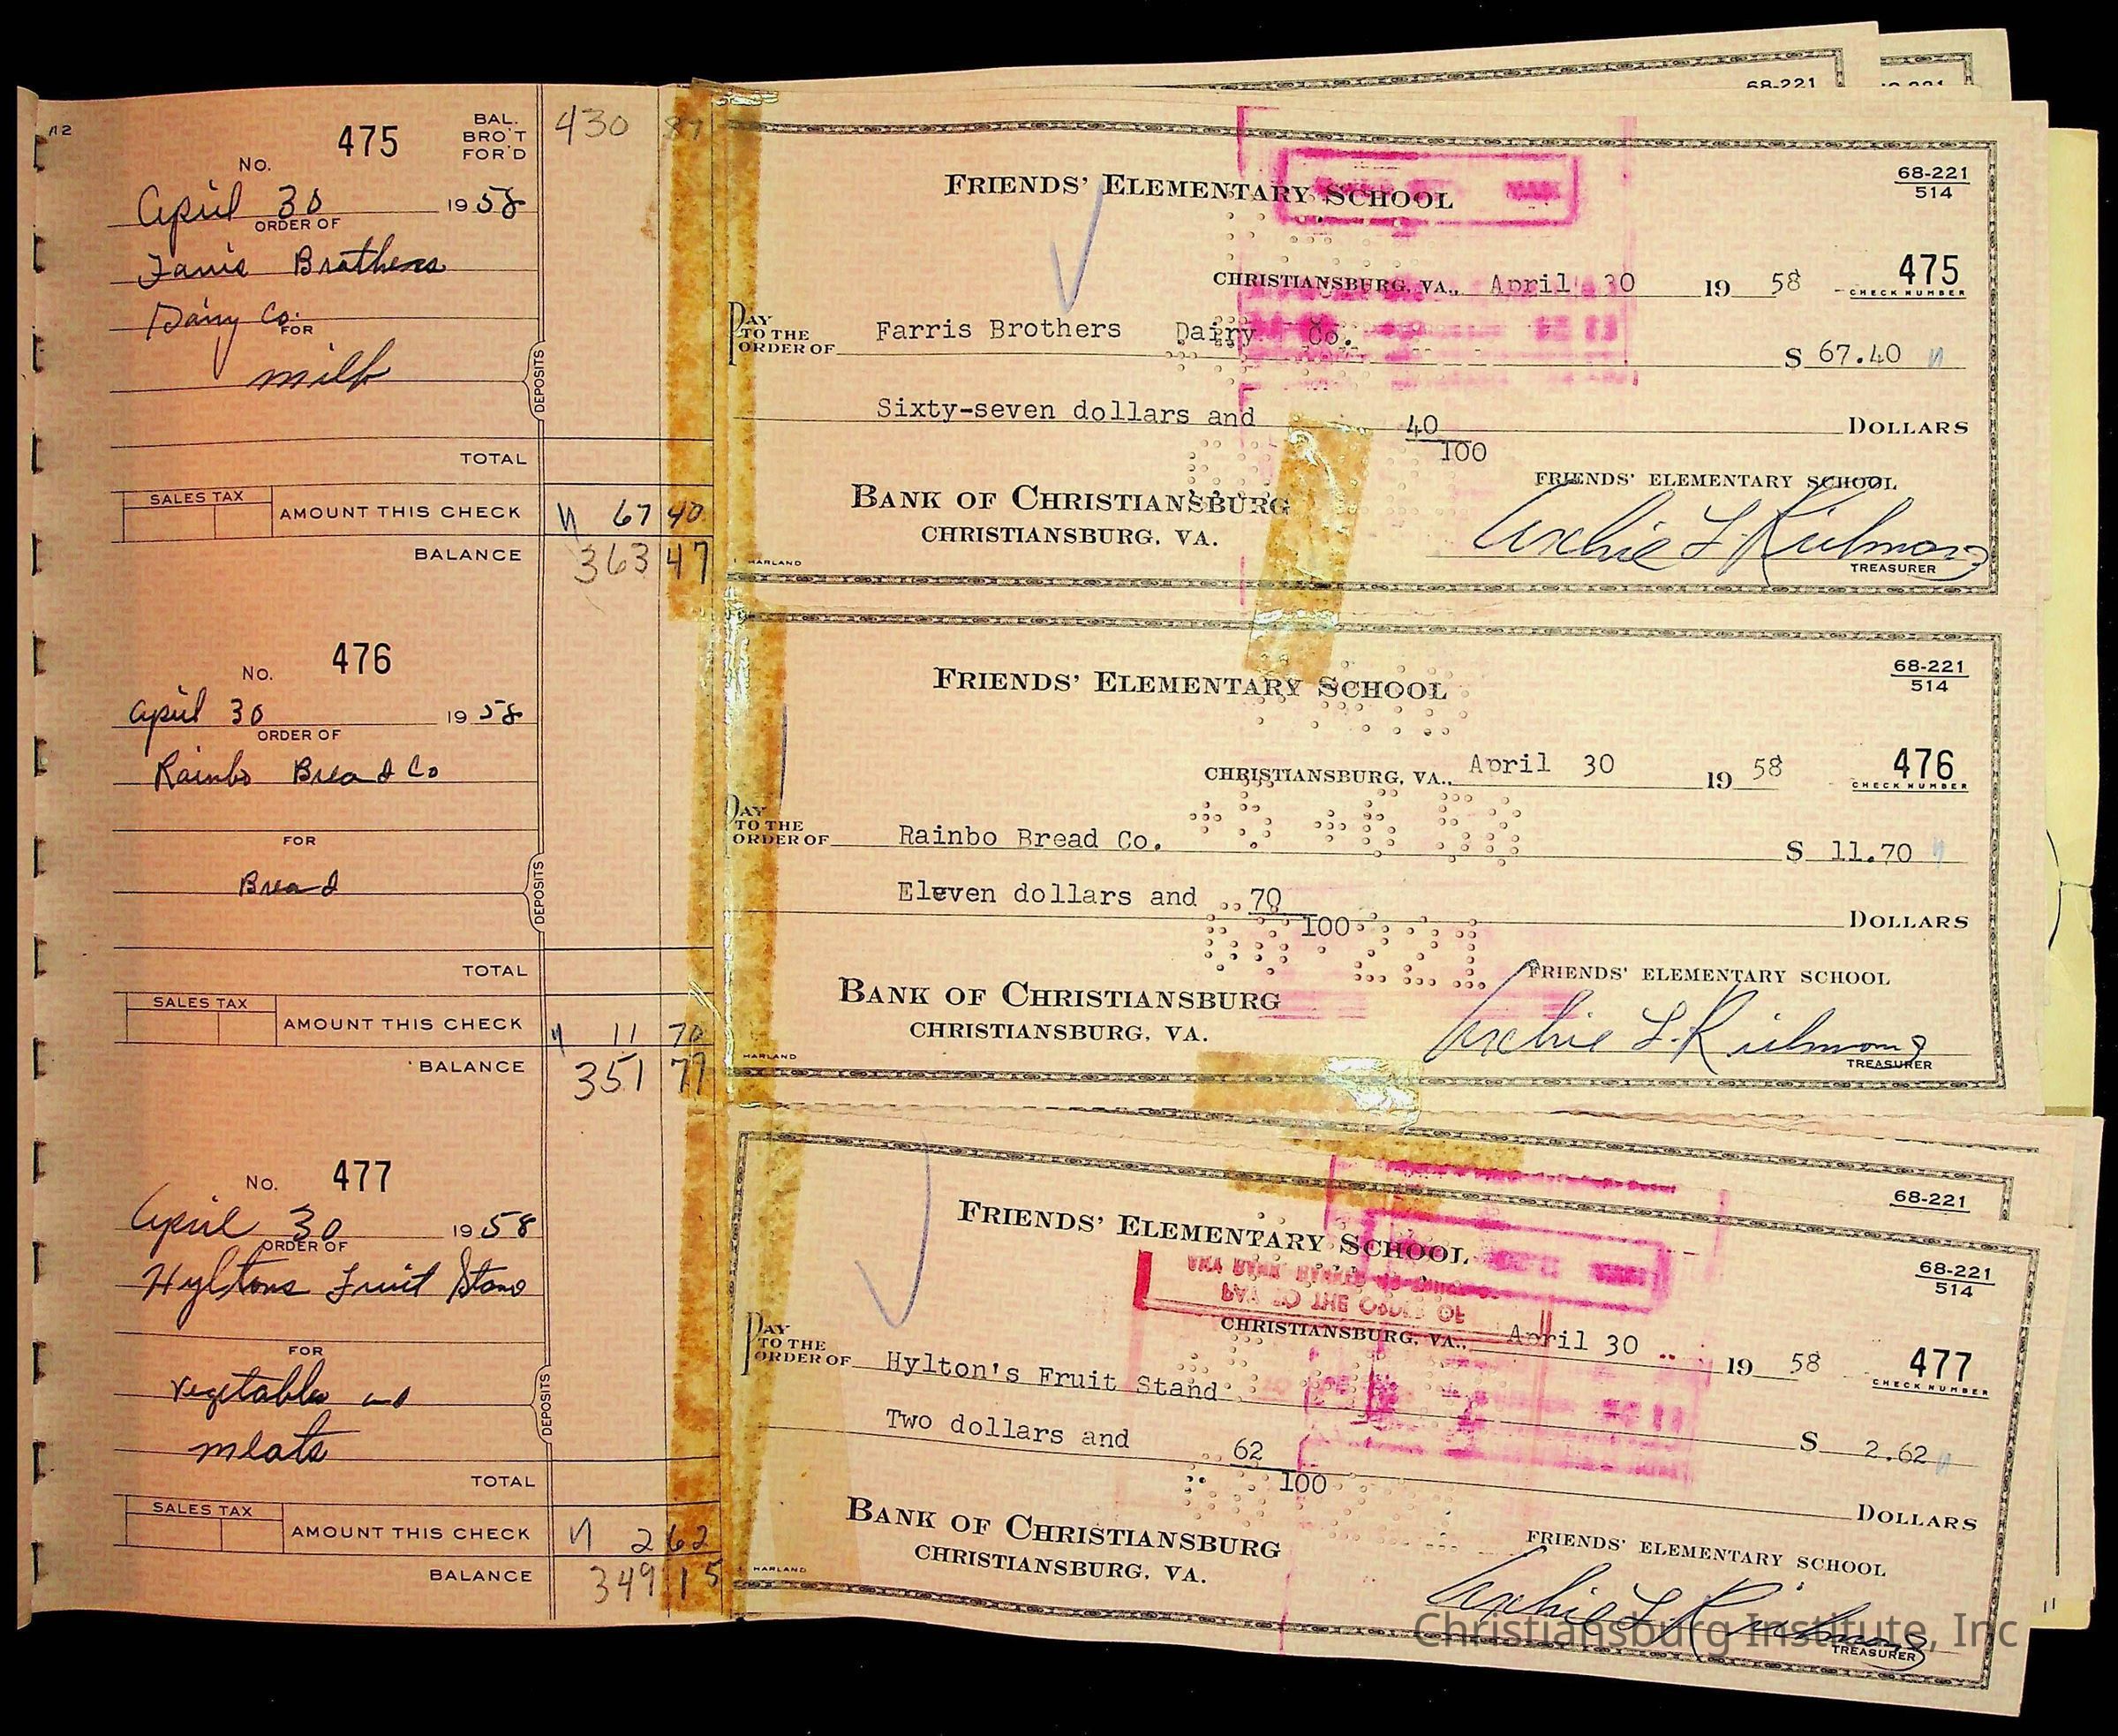 112
No. 475
BAL. BRO'T FOR'D 430 87
April 30 1958
ORDER OF
Farris Brothers
Dairy Co.
FOR
milk
DEPOSITS
TOTAL
SALES TAX
AMOUNT THIS CHECK 67 40
BALANCE 363 47
No. 476
April 30 1958
ORDER OF
Rainbo Bread Co
FOR
Bread
DEPOSITS
TOTAL
SALES TAX
AMOUNT THIS CHECK 11 70
BALANCE 351 77
No. 477
April 30 1958
ORDER OF
Hyltons Fruit Stand
FOR
vegetables and
meats
DEPOSITS
TOTAL
SALES TAX
AMOUNT THIS CHECK 2 62
BALANCE 349 15
68-221
68-221
514
FRIENDS' ELEMENTARY SCHOOL
CHRISTIANSBURG, VA., April 30 19 58
475
CHECK NUMBER
PAY TO THE ORDER OF Farris Brothers Dairy Co.
$ 67.40
Sixty-seven dollars and 40/100 DOLLARS
BANK OF CHRISTIANSBURG
CHRISTIANSBURG, VA.
HARLAND
FRIENDS' ELEMENTARY SCHOOL
Archie L. Richmond
TREASURER
68-221
514
FRIENDS' ELEMENTARY SCHOOL
CHRISTIANSBURG, VA., April 30 19 58
476
CHECK NUMBER
PAY TO THE ORDER OF Rainbo Bread Co.
$ 11.70
Eleven dollars and 70/100 DOLLARS
BANK OF CHRISTIANSBURG
CHRISTIANSBURG, VA.
HARLAND
FRIENDS' ELEMENTARY SCHOOL
Archie L. Richmond
TREASURER
68-221
68-221
514
FRIENDS' ELEMENTARY SCHOOL
PAY TO THE ORDER OF
CHRISTIANSBURG, VA., April 30 19 58
477
CHECK NUMBER
PAY TO THE ORDER OF Hylton's Fruit Stand
$ 2.62
Two dollars and 62/100 DOLLARS
BANK OF CHRISTIANSBURG
CHRISTIANSBURG, VA.
HARLAND
FRIENDS' ELEMENTARY SCHOOL
Archie L. Richmond
TREASURER
Christiansburg Institute, Inc